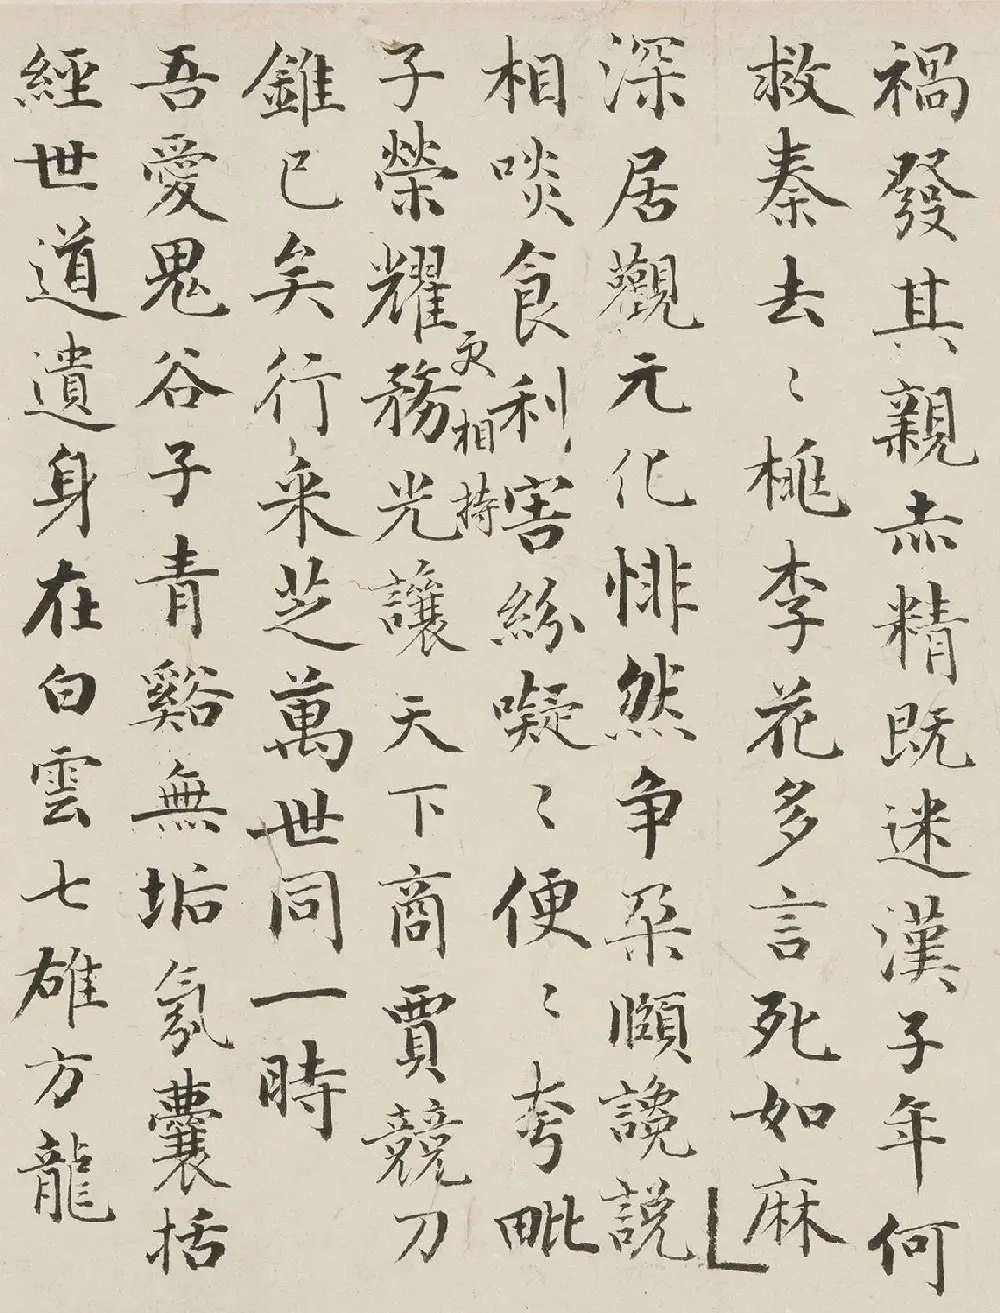 禍發其親赤精既迷漢子年何
救秦去〻桃李花多言死如麻
深居觀元化悱然争朵頤讒説
相啖食利害紛㘈〻便〻夸毗
子榮耀務光讓天下商賈競刀
更相持
錐已矣行采芝萬世同一時
吾愛鬼谷子青谿無垢氛囊括
經世道遺身在白雲七雄方龍